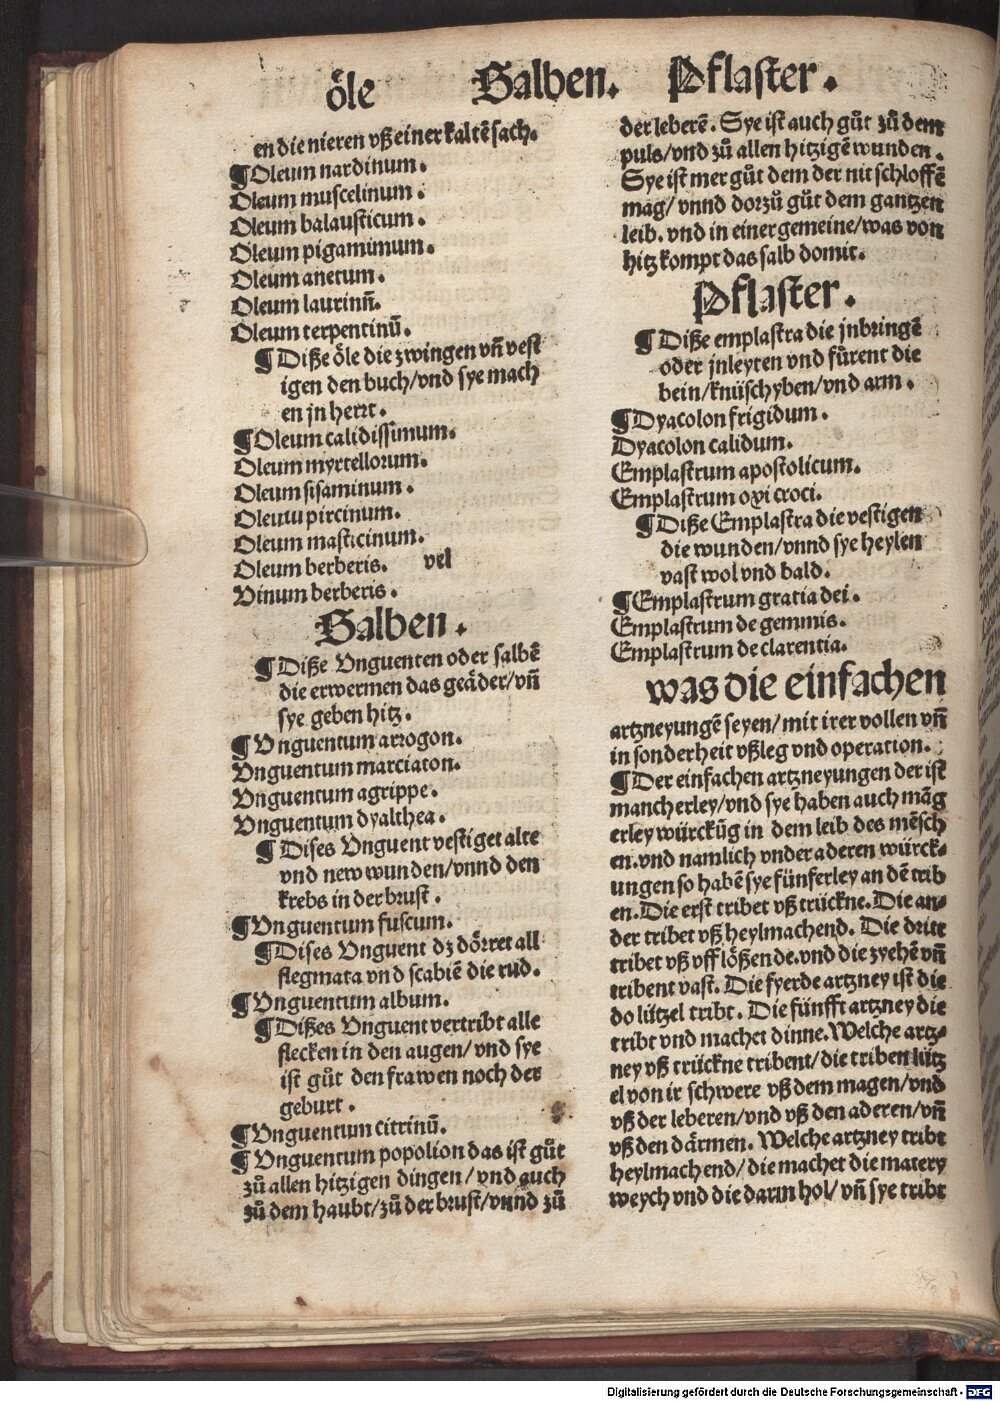 öle Salben. Pflaster.
en die nieren vß einer kaltē sach.
¶Oleum nardinum.
Oleum muscelinum.
Oleum balausticum.
Oleum pigamimum.
Oleum anetum.
Oleum laurinū.
Oleum terpentinū.
¶Diße öle die zwingen vñ vest
igen den buch/vnd sye mach
en jn hertt.
¶Oleum calidissimum.
Oleum myrtellorum.
Oleum sisaminum.
Oleum pircinum.
Oleum masticinum.
Oleum berberis. vel
Vinum berberis.
Salben.
¶Diße Vnguenten oder salbē
die erwermen das geäder/vñ
sye geben hitz.
¶Vnguentum arrogon.
Vnguentum marciaton.
Vnguentum agrippe.
Vnguentum dyalthea.
¶Dises Vnguent vestiget alte
vnd new wunden/vnnd den
krebs in der brust.
¶Vnguentum fuscum.
¶Dises Vnguent dz dörret all
flegmata vnd scabiē die rud.
¶Vnguentum album.
¶Dißes Vnguent vertribt alle
flecken in den augen/vnd sye
ist gůt den frawen noch der
geburt.
¶Vnguentum citrinū.
¶Vnguentum popolion das ist gůt
zů allen hitzigen dingen/vnd auch
zů dem haubt/zů der brust/vnnd zů
der leberē. Sye ist auch gůt zů dem
puls/vnd zů allen hitzigē wunden.
Sye ist mer gůt dem der nit schloffē
mag/vnnd dorzů gůt dem gantzen
leib. vnd in einer gemeine/was von
hitz kompt das salb domit.
Pflaster.
¶Diße emplastra die jnbringē
oder jnleyten vnd fůrent die
bein/knüschyben/vnd arm.
¶Dyacolon frigidum.
Dyacolon calidum.
Emplastrum apostolicum.
Emplastrum oxi croci.
¶Diße Emplastra die vestigen
die wunden/vnnd sye heylen
vast wol vnd bald.
¶Emplastrum gratia dei.
Emplastrum de gemmis.
Emplastrum de clarentia.
was die einfachen
artzneyungē seyen/mit irer vollen vñ
in sonderheit vßleg vnd operation.
¶Der einfachen artzneyungen der ist
mancherley/vnd sye haben auch māg
erley würckūg in dem leib des mēsch
en.vnd namlich vnder aderen würck⸗
ungen so habē sye fünferley an dē trib
en.Die erst tribet vß trückne.Die an⸗
der tribet vß heylmachend. Die dritt
tribet vß vfflößende.vnd die zyehē vñ
tribent vast. Die fyerde artzney ist die
do lützel tribt. Die fünfft artzney die
tribt vnd machet dinne.Welche artz⸗
ney vß trückne tribent/die triben lütz
el von ir schwere vß dem magen/vnd
vß der leberen/vnd vß den aderen/vñ
vß den därmen. Welche artzney tribt
heylmachend/die machet die matery
weych vnd die darm hol/vñ sye tribt
Digitalisierung gefördert durch die Deutsche Forschungsgemeinschaft - DFG